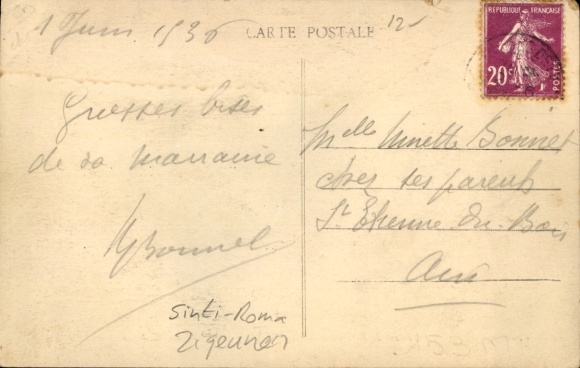 1 Juin 1936
CARTE POSTALE
12-
REPUBLIQUE FRANÇAISE
20c
POSTES
Grosses bises
de sa marraine
Bonnet
Sinti-Roma
Zigeuner
Mlle Ninette Bonnet
chez ses parents
St Etienne du Bois
Ain